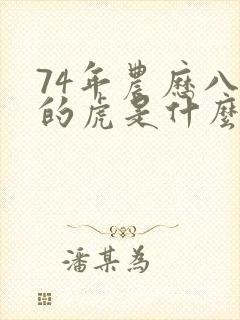 74年農歷八
的虎是什麼
潘某為